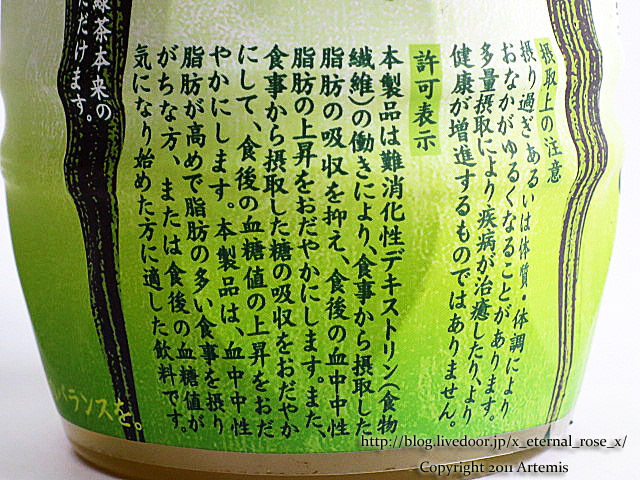 摂取上の注意
摂り過ぎあるいは体質・体調により
おなかがゆるくなることがあります。
多量摂取により疾病が治癒したり、より
健康が増進するものではありません。
許可表示
本製品は難消化性デキストリン(食物
繊維)の働きにより、食事から摂取した
脂肪の吸収を抑え、食後の血中中性
脂肪の上昇をおだやかにします。また、
食事から摂取した糖の吸収をおだやか
にして、食後の血糖値の上昇をおだ
やかにします。本製品は、血中中性
脂肪が高めで脂肪の多い食事を摂り
がちな方、または食後の血糖値が
気になり始めた方に適した飲料です。
緑茶本来の
ただけます。
バランスを。
http://blog.livedoor.jp/x_eternal_rose_x/
Copyright 2011 Artemis